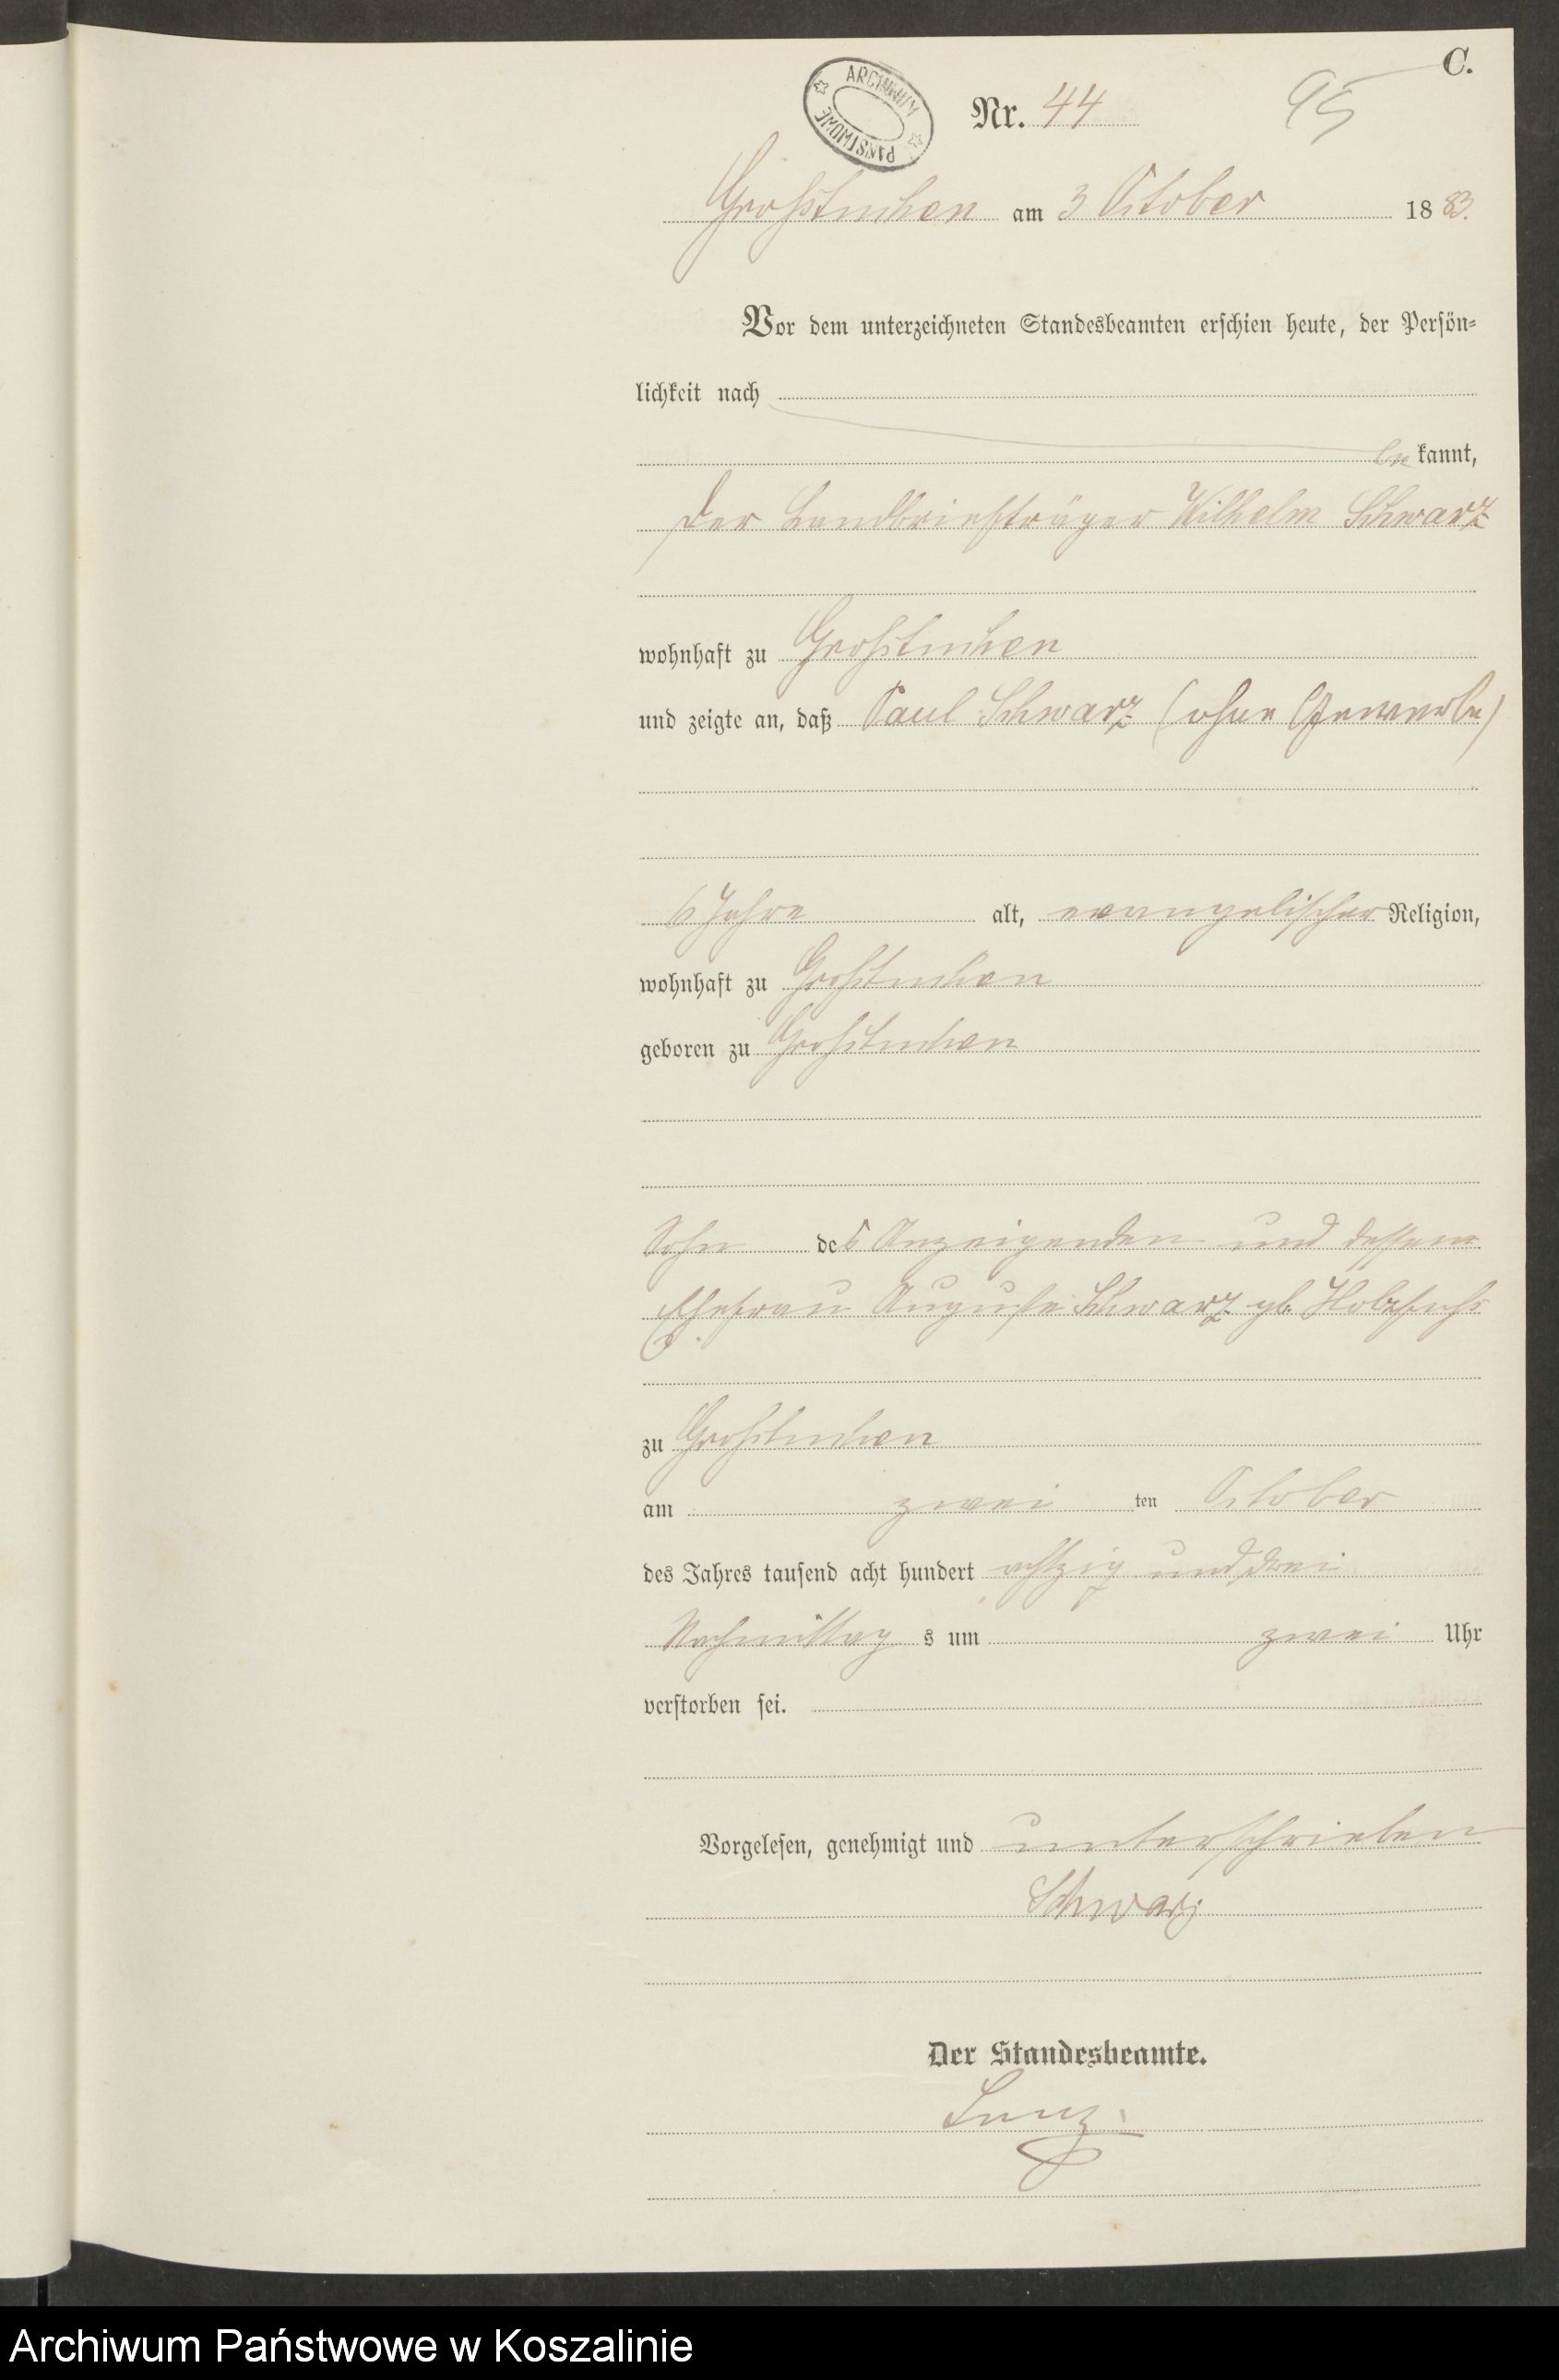 C.
ARCHIWUM PAŃSTWOWE
Nr. 44
95
Großtuchen am 3 October 1883.
Vor dem unterzeichneten Standesbeamten erschien heute, der Persön-
lichkeit nach
bekannt,
der Landbriefträger Wilhelm Schwarz
wohnhaft zu Großtuchen
und zeigte an, daß Paul Schwarz (ohne Gewerbe)
6 Jahre alt, evangelischer Religion,
wohnhaft zu Großtuchen
geboren zu Großtuchen
Sohn des Anzeigenden und dessen
Ehefrau Auguste Schwarz gb.
zu Großtuchen
am zwei ten October
des Jahres tausend acht hundert achtzig und drei
Nachmittag s um zwei Uhr
verstorben sei.
Vorgelesen, genehmigt und unterschrieben
Schwarz
Der Standesbeamte.
Archiwum Państwowe w Koszalinie